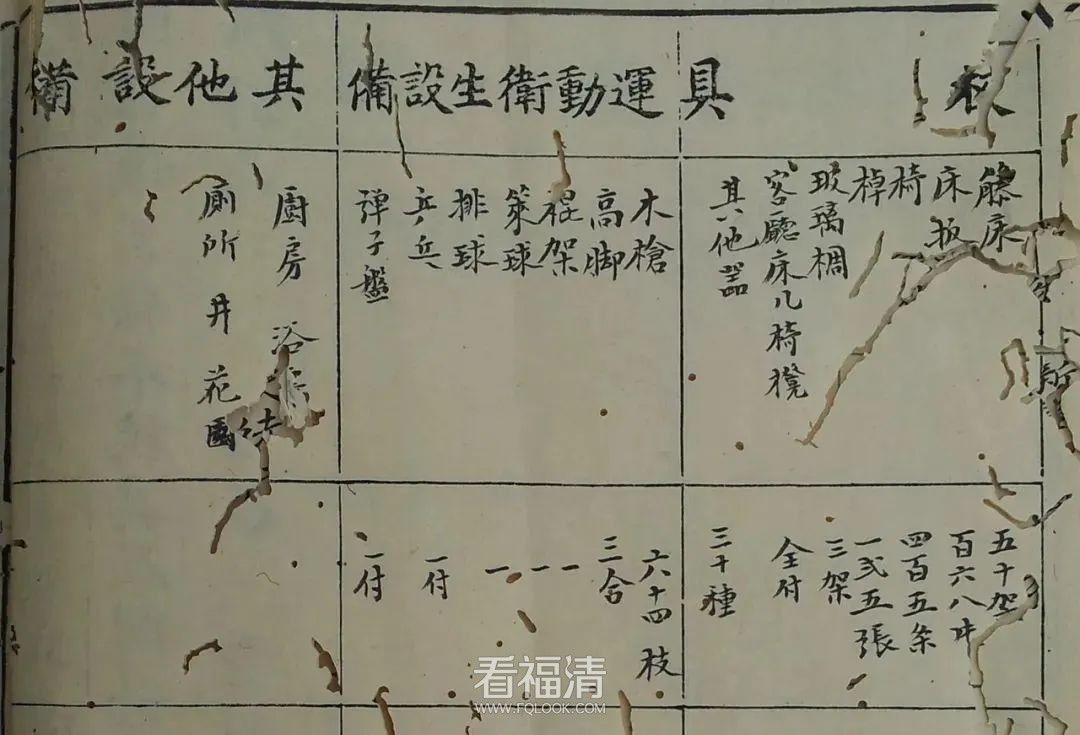 校具
藤床
床板
椅
棹
玻璃棡
客廳床几椅櫈
其他器
五十架
百六八片
四百五条
一弍五張
三架
全付
三十種
運動衛生設備
木槍
高脚
棍架
策球
排球
乒乓
弹子盤
六十四枝
三合
一
一
一
一付
一付
其他設備
廚房 浴
厠所 井 花園
看福清
WWW.FQLOOK.COM